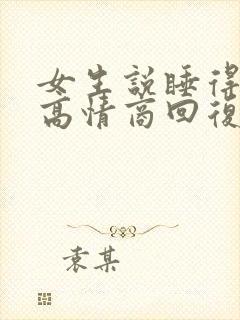 女生說睡得
高情商回復
袁某